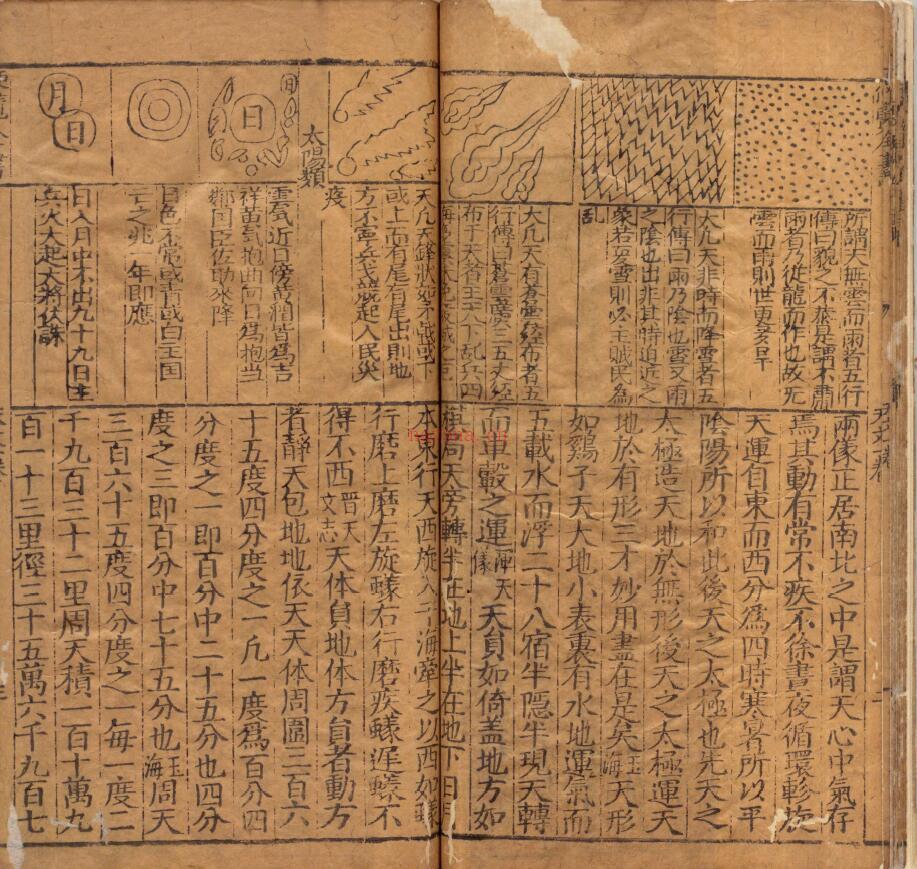 所謂天無雲而雨者五行
傳曰貌之不恭是謂不肅
雨者乃從龍而作也故先
雲而雨則世更多旱
大凡天非時而降雪者五
行傳曰雨乃陰也雪又雨
之陰也出非其時迫近之
象若夏雪則必主賊民為
亂
大凡天有蒼雲經布者五
行傳曰蒼雲廣三五丈經
布于天者主天下亂兵四
兩儀正居南北之中是謂天心中氣存
焉其動有常不疾不徐晝夜循環斡旋
天運自東而西分爲四時寒暑所以平
陰陽所以和此後天之太極也先天之
太極造天地於無形後天之太極運天
地於有形三才妙用盡在是矣玉海天形
如鷄子天大地小表裏有水地運氣而
五載水而浮二十八宿半隱半現天轉
而車轂之運渾天儀天員如倚蓋地方如
棋局天旁轉半在地上半在地下日
天凡天鋒狀如不或下
或上而有尾有尾出則地
方不寧兵戈競起人民災
疫
太陽類
日
日
雲氣近日傍黃潤皆爲吉
祥黃氣抱曲向日爲抱當
鄰國臣佐助來降
日色不常或青或白主国
亡之兆一年即應
月
日
日入月中不出九十九日主
兵火大起大將伏誅
本東行天西旋入于海牽之以西如蟻
行磨上磨左旋蟻右行磨疾蟻遲蟻不
得不西晋天文志天体員地体方員者動方
者靜天包地地依天天体周圍三百六
十五度四分度之一凡一度爲百分四
分度之一即百分中二十五分也四分
度之三即百分中七十五分也玉海周天
三百六十五度四分度之一每一度二
千九百三十二里周天積一百十萬九
百一十三里徑三十五萬六千九百七